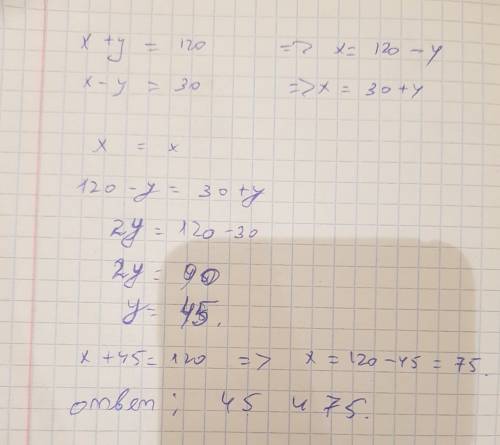 x + y = 120 => x = 120 - y
x - y = 30 => x = 30 + y
x = x
120 - y = 30 + y
2y = 120 - 30
2y = 90
y = 45.
x + 45 = 120 => x = 120 - 45 = 75.
ответ; 45 и 75.